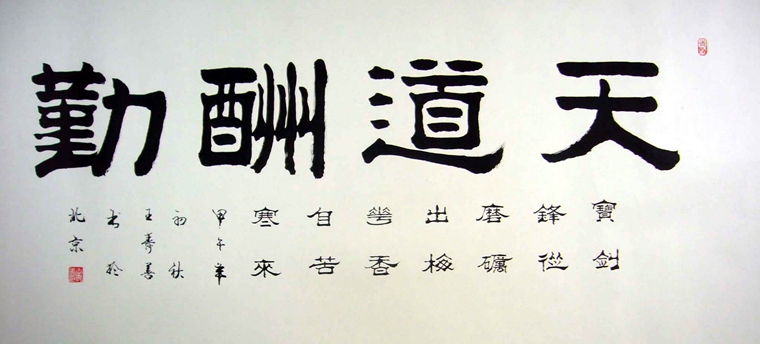 天道酬勤
寶劍
鋒從
磨礪
出梅
華香
自苦
寒來
甲午年
初秋
王壽善
書於
北京